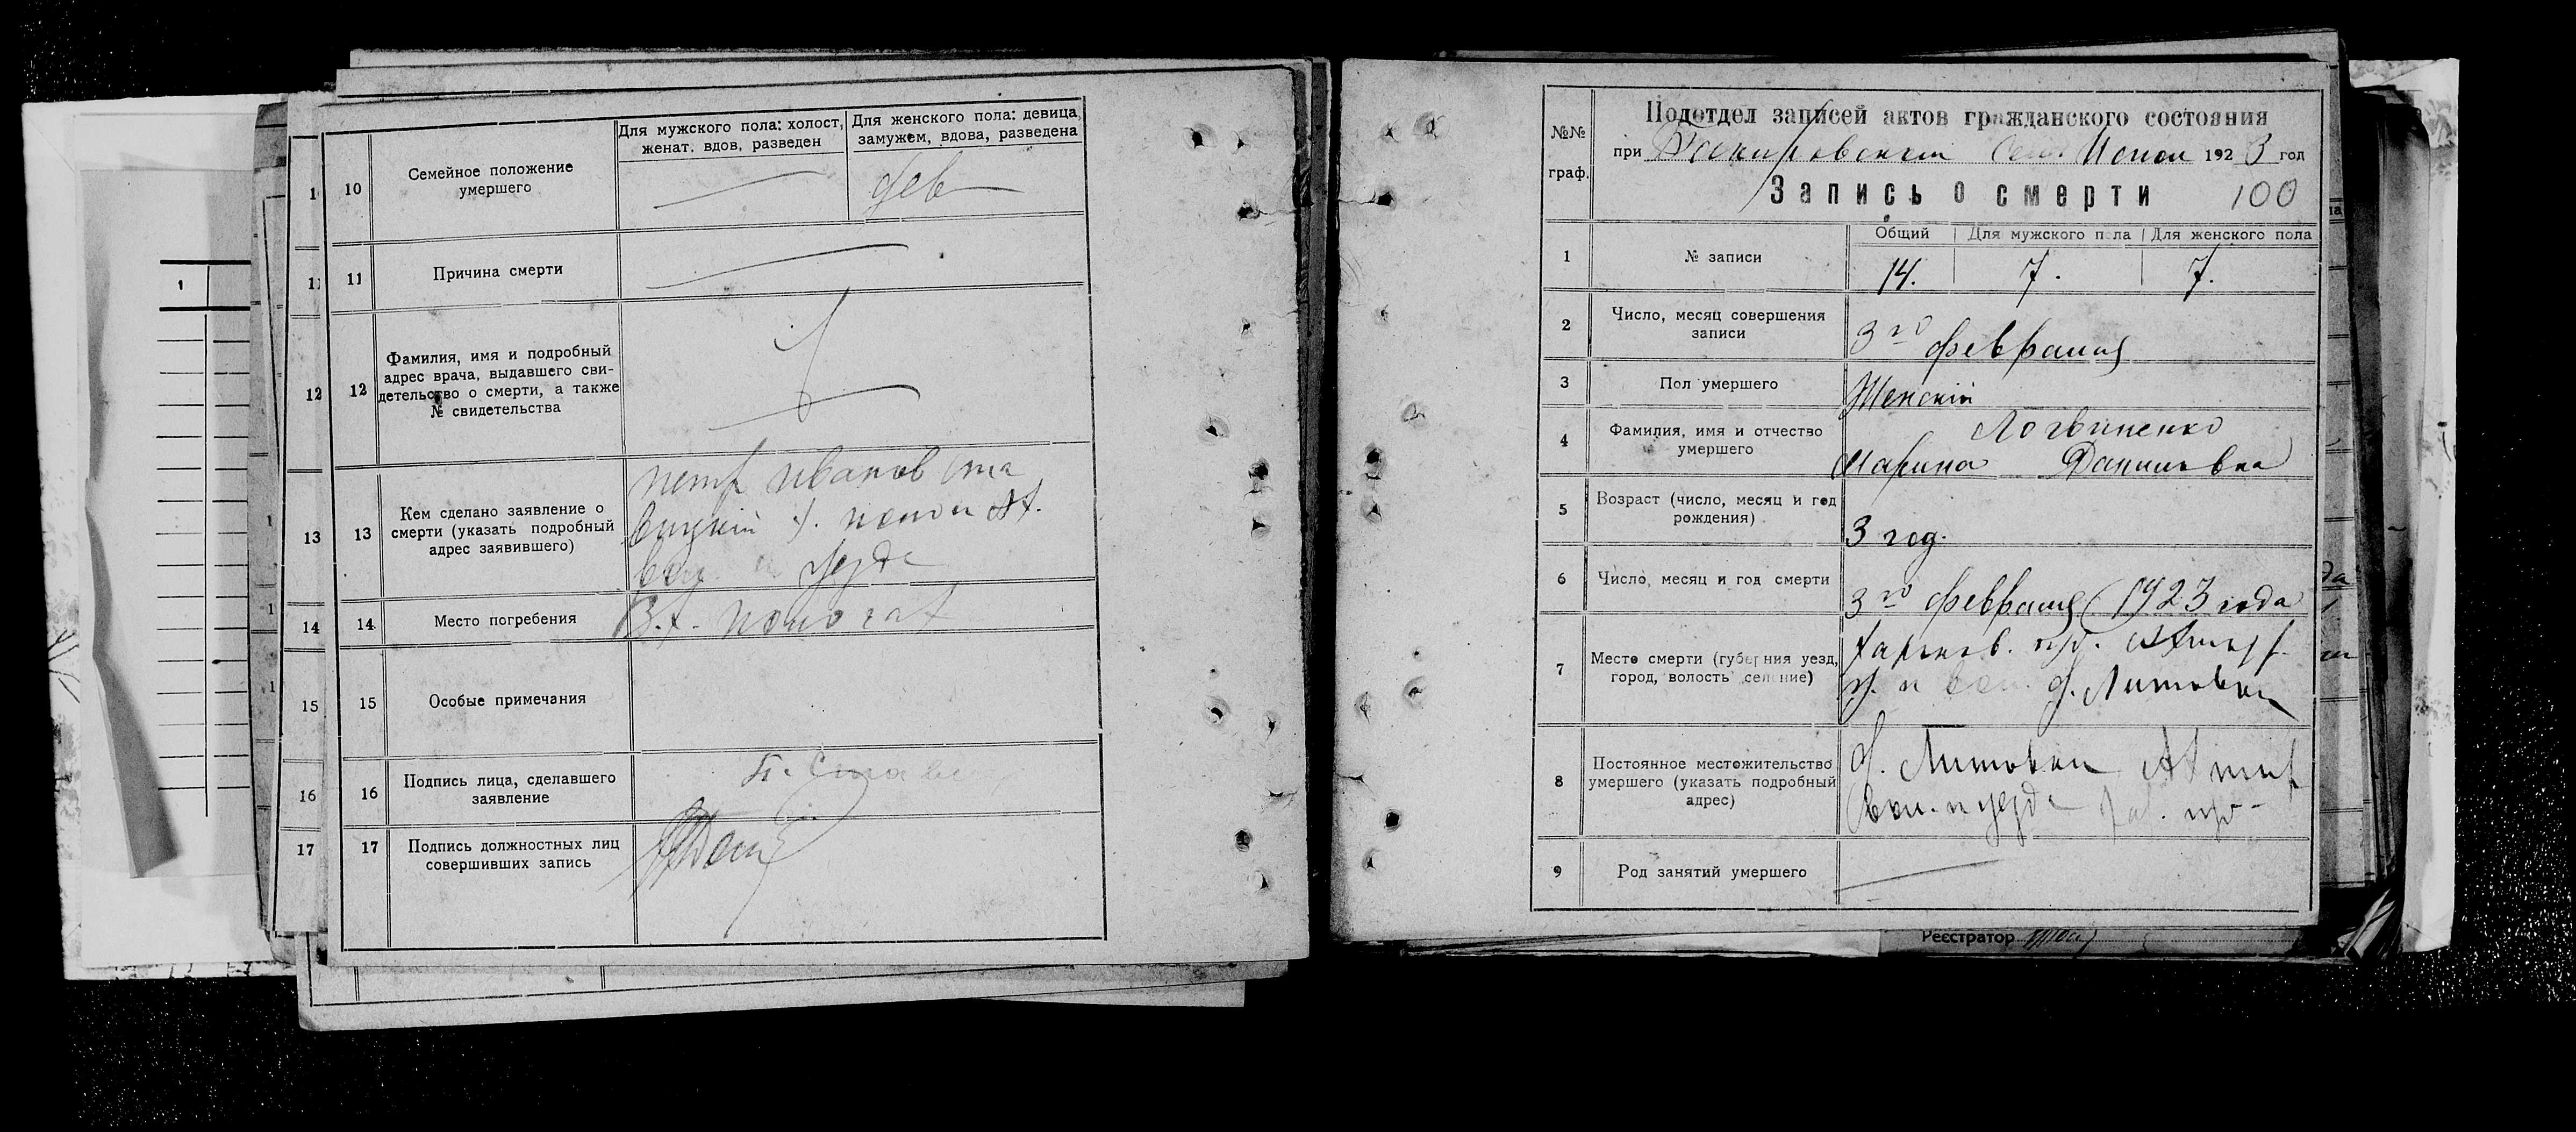 10
Семейное положение
умершего
Для мужского пола: холост,
женат. вдов, разведен
Для женского пола: девица,
замужем, вдова, разведена
дев
11
Причина смерти
12
Фамилия, имя и подробный
адрес врача, выдавшего сви-
детельство о смерти, а также
№ свидетельства
13
Кем сделано заявление о
смерти (указать подробный
адрес заявившего)
петр иванов Ста
вицкій
уезда
14
Место погребения
15
Особые примечания
16
Подпись лица, сделавшего
заявление
17
Подпись должностных лиц
совершивших запись
1
11
12
13
14
15
16
17
№№
граф.
Подотдел записей актов гражданского состояния
при 1923 год
Запись о смерти 100
1
№ записи
Общий
Для мужского пола
Для женского пола
14. 7. 7.
2
Число, месяц совершения
записи
3го февраля
3
Пол умершего
Женскій
4
Фамилия, имя и отчество
умершего
Логвиненко
Марина Даниловна
5
Возраст (число, месяц и год
рождения)
3 год.
6
Число, месяц и год смерти
3го февраля 1923 года
7
Место смерти (губерния уезд,
город, волость селение)
Харьков. гу.
у. и вол. Литовки
8
Постоянное местожительство
умершего (указать подробный
адрес)
Литовки Ахтыр
вол. и уезда Хар. гу-
9
Род занятий умершего
Реєстратор